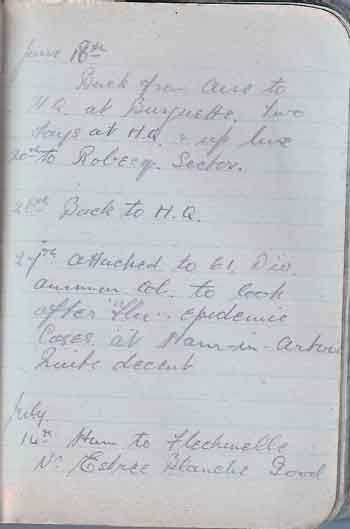 June 18th
Back from Aire to
H.Q. at Burguette. Two
days at H.Q. & up line
20th to Robecq Sector.
25th Back to H.Q.
27th attached to 61. Div.
ammun Col. to look
after "flu" epidemic
Cases at Ham-in-Artois
Quite decent
July
14th Ham to Flechinelle
Nr Estree Blanche Good